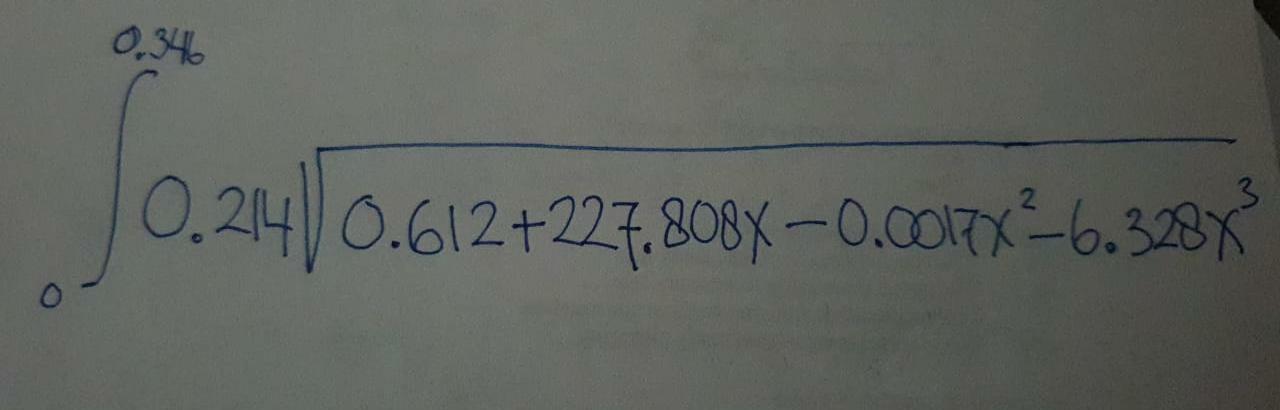 0.346
∫ 0.214√0.612+227.808x−0.0017x²−6.328x³
0